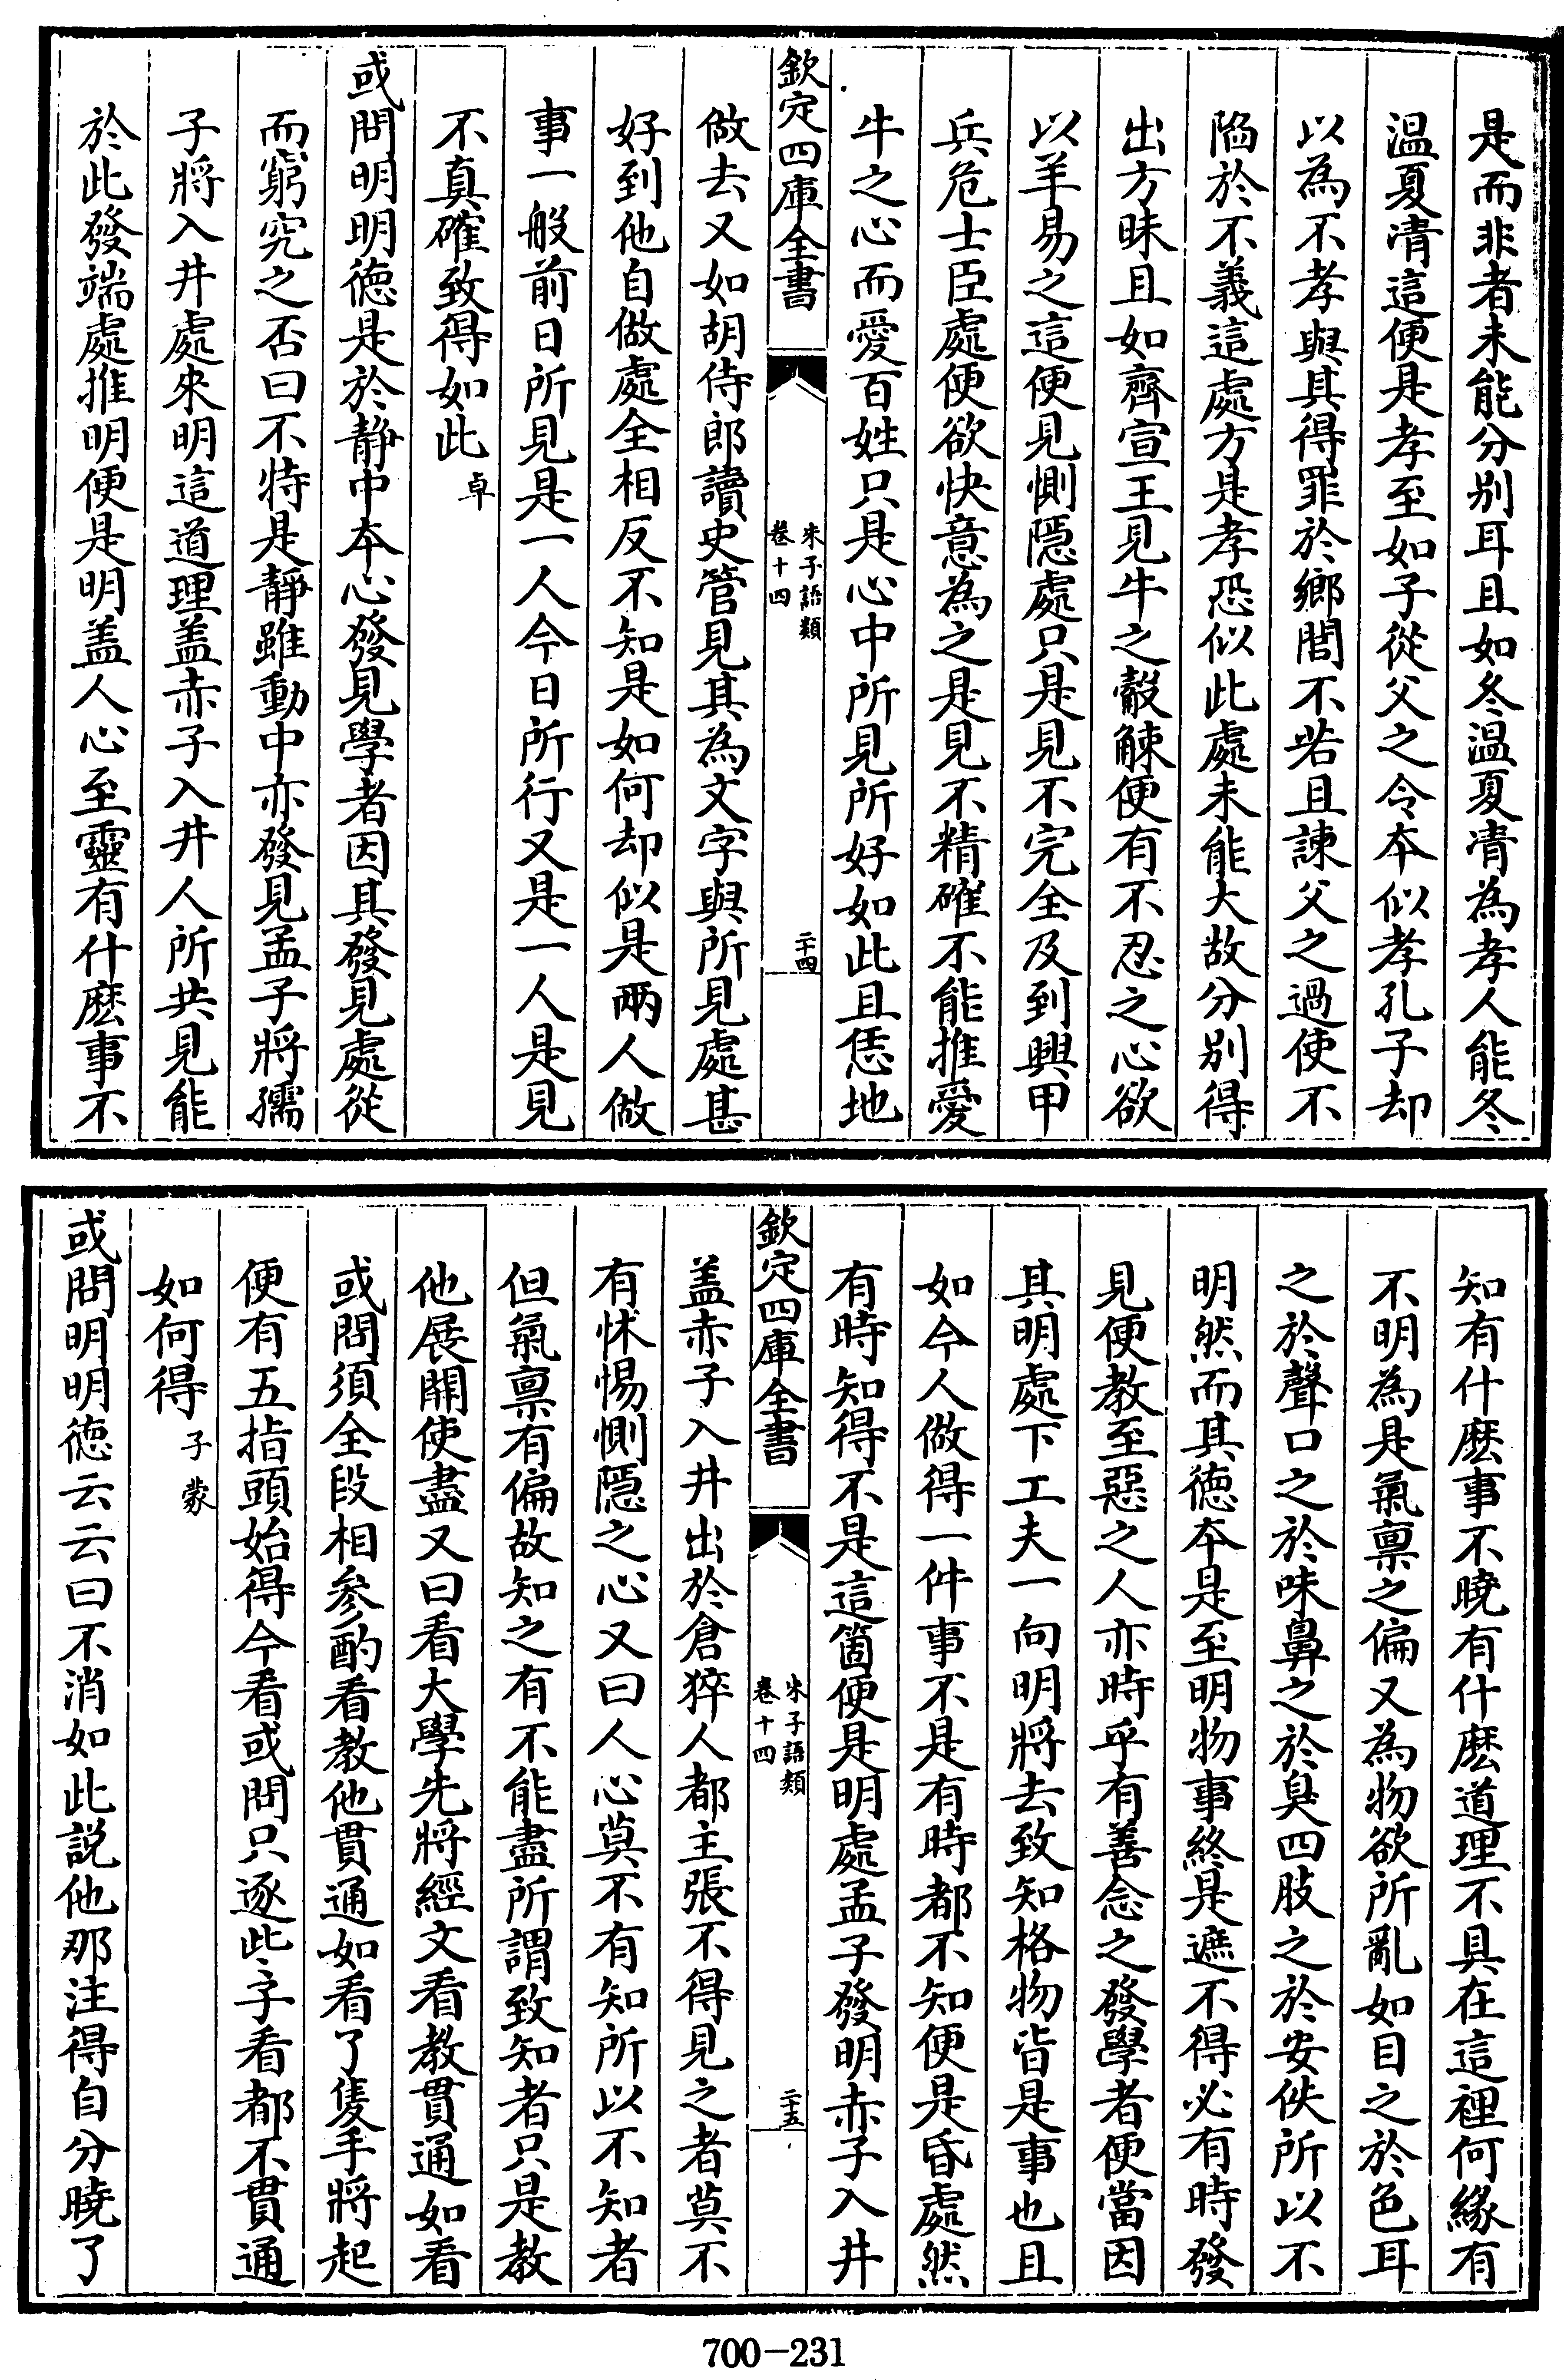 是而非者未能分别耳且如冬温夏凊為孝人能冬
温夏凊這便是孝至如子從父之令本似孝孔子却
以為不孝與其得罪於鄉閭不若且諫父之過使不
陷於不義這處方是孝恐似此處未能大故分别得
出方昧且如齊宣王見牛之觳觫便有不忍之心欲
以羊易之這便見惻隱處只是見不完全及到興甲
兵危士臣處便欲快意為之是見不精確不能推愛
牛之心而愛百姓只是心中所見所好如此且恁地
欽定四庫全書
朱子語類
卷十四
二十四
做去又如胡侍郎讀史管見其為文字與所見處甚
好到他自做處全相反不知是如何却似是兩人做
事一般前日所見是一人今日所行又是一人是見
不真確致得如此 卓
或問明明徳是於静中本心發見學者因其發見處從
而窮究之否曰不特是靜雖動中亦發見孟子將孺
子將入井處來明這道理盖赤子入井人所共見能
於此發端處推明便是明盖人心至靈有什麽事不
知有什麽事不曉有什麽道理不具在這裡何緣有
不明為是氣禀之偏又為物欲所亂如目之於色耳
之於聲口之於味鼻之於臭四肢之於安佚所以不
明然而其徳本是至明物事終是遮不得必有時發
見便教至惡之人亦時乎有善念之發學者便當因
其明處下工夫一向明將去致知格物皆是事也且
如今人做得一件事不是有時都不知便是昏處然
有時知得不是這箇便是明處孟子發明赤子入井
欽定四庫全書
朱子語類
卷十四
二十五
盖赤子入井出於倉猝人都主張不得見之者莫不
有怵惕惻隱之心又曰人心莫不有知所以不知者
但氣禀有偏故知之有不能盡所謂致知者只是教
他展開使盡又曰看大學先將經文看教貫通如看
或問須全段相參酌看教他貫通如看了隻手將起
便有五指頭始得今看或問只逐此字看都不貫通
如何得 子蒙
或問明明徳云云曰不消如此説他那注得自分曉了
700-231